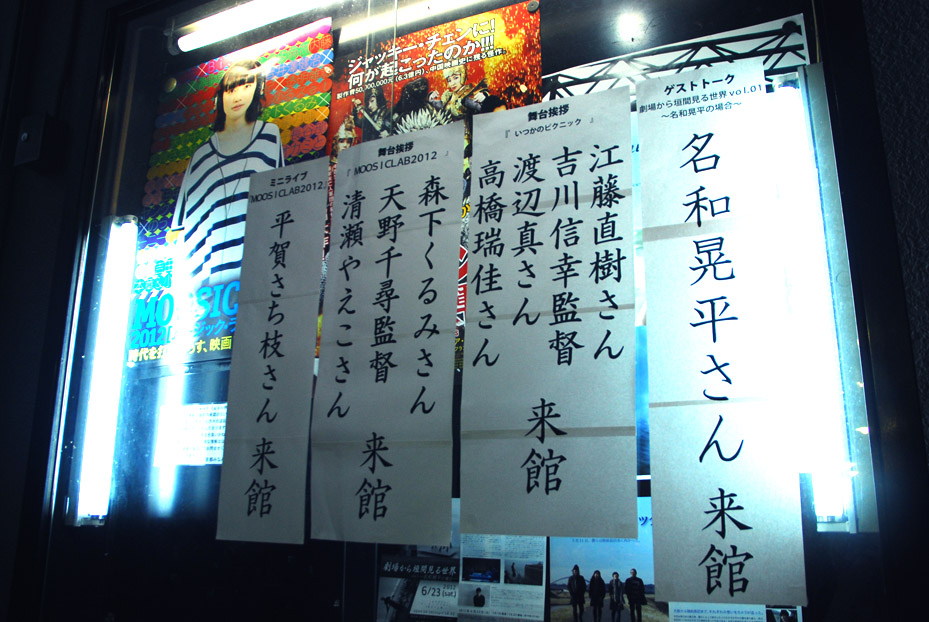 ゲストトーク
劇場から垣間見る世界 vol.01
〜名和晃平の場合〜
名和晃平さん 来館
舞台挨拶
『 いつかのピクニック 』
江藤直樹さん
吉川信幸監督
渡辺真さん
高橋瑞佳さん
来館
舞台挨拶
『 MOOSICLAB2012 』
森下くるみさん
天野千尋監督
清瀬やえこさん
来館
ミニライブ
『MOOSICLAB2012』
平賀さち枝さん 来館
ジャッキー・チェンに!
何が起こったのか!!!
製作費50,000,000元(6.3億円)、中国映画史に残る怪作。
MOOSIC
2012
劇場から垣間見る世界
6/23
(sat.)